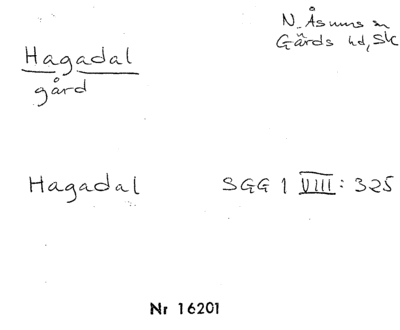 Hagadal
gård
N. Åsums sn
Gärds hd, Sk
Hagadal SGG 1 VIII: 325
Nr 16201